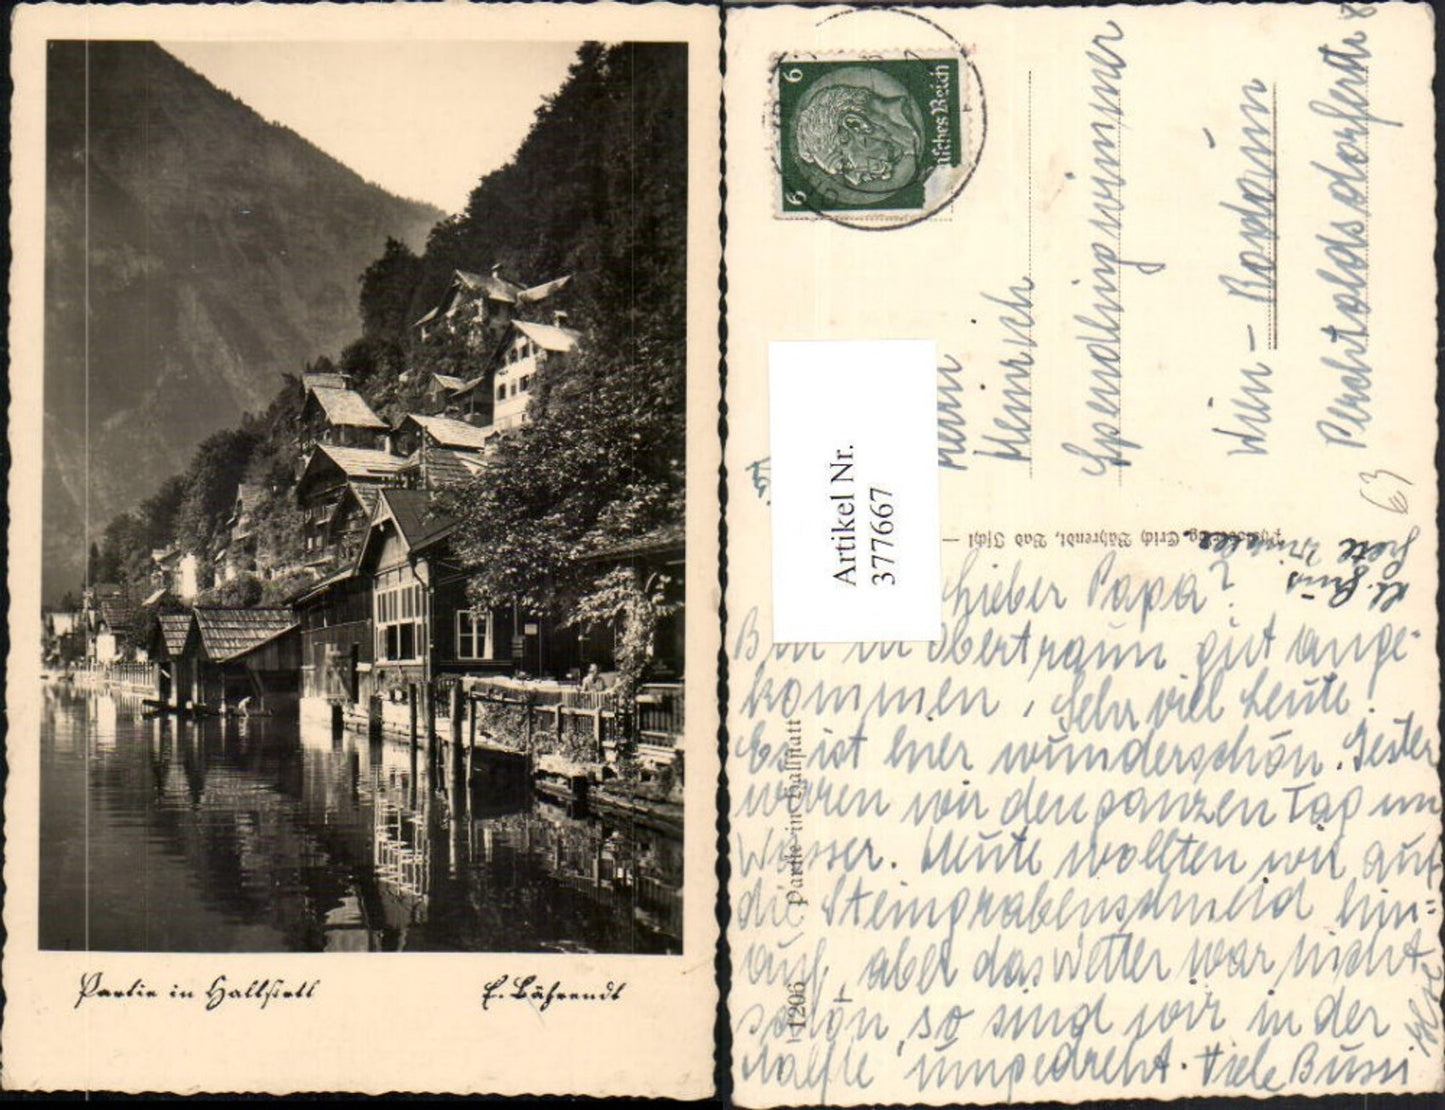 Partie in Hallstatt
E. Bährendt
6
6
Deutsches Reich
Artikel Nr.
377667
Herrn
Heinrich
Spendlingwimmer
Wien -
Perchtoldsdorferst 8
63
Erich Bährendt, Bad Ischl —
Partie in Hallstatt
1206
Lieber Papa!
Bin in Obertraun gut ange-
kommen, Sehr viel Leute.
Es ist hier wunderschön. Gester
waren wir den ganzen Tag im
Wasser. Heute wollten wir auf
die Steingrabenschneid hin-
auf, aber das Wetter war nicht
schön, so sind wir in der
Hälfte umgedreht. Viele Bussi